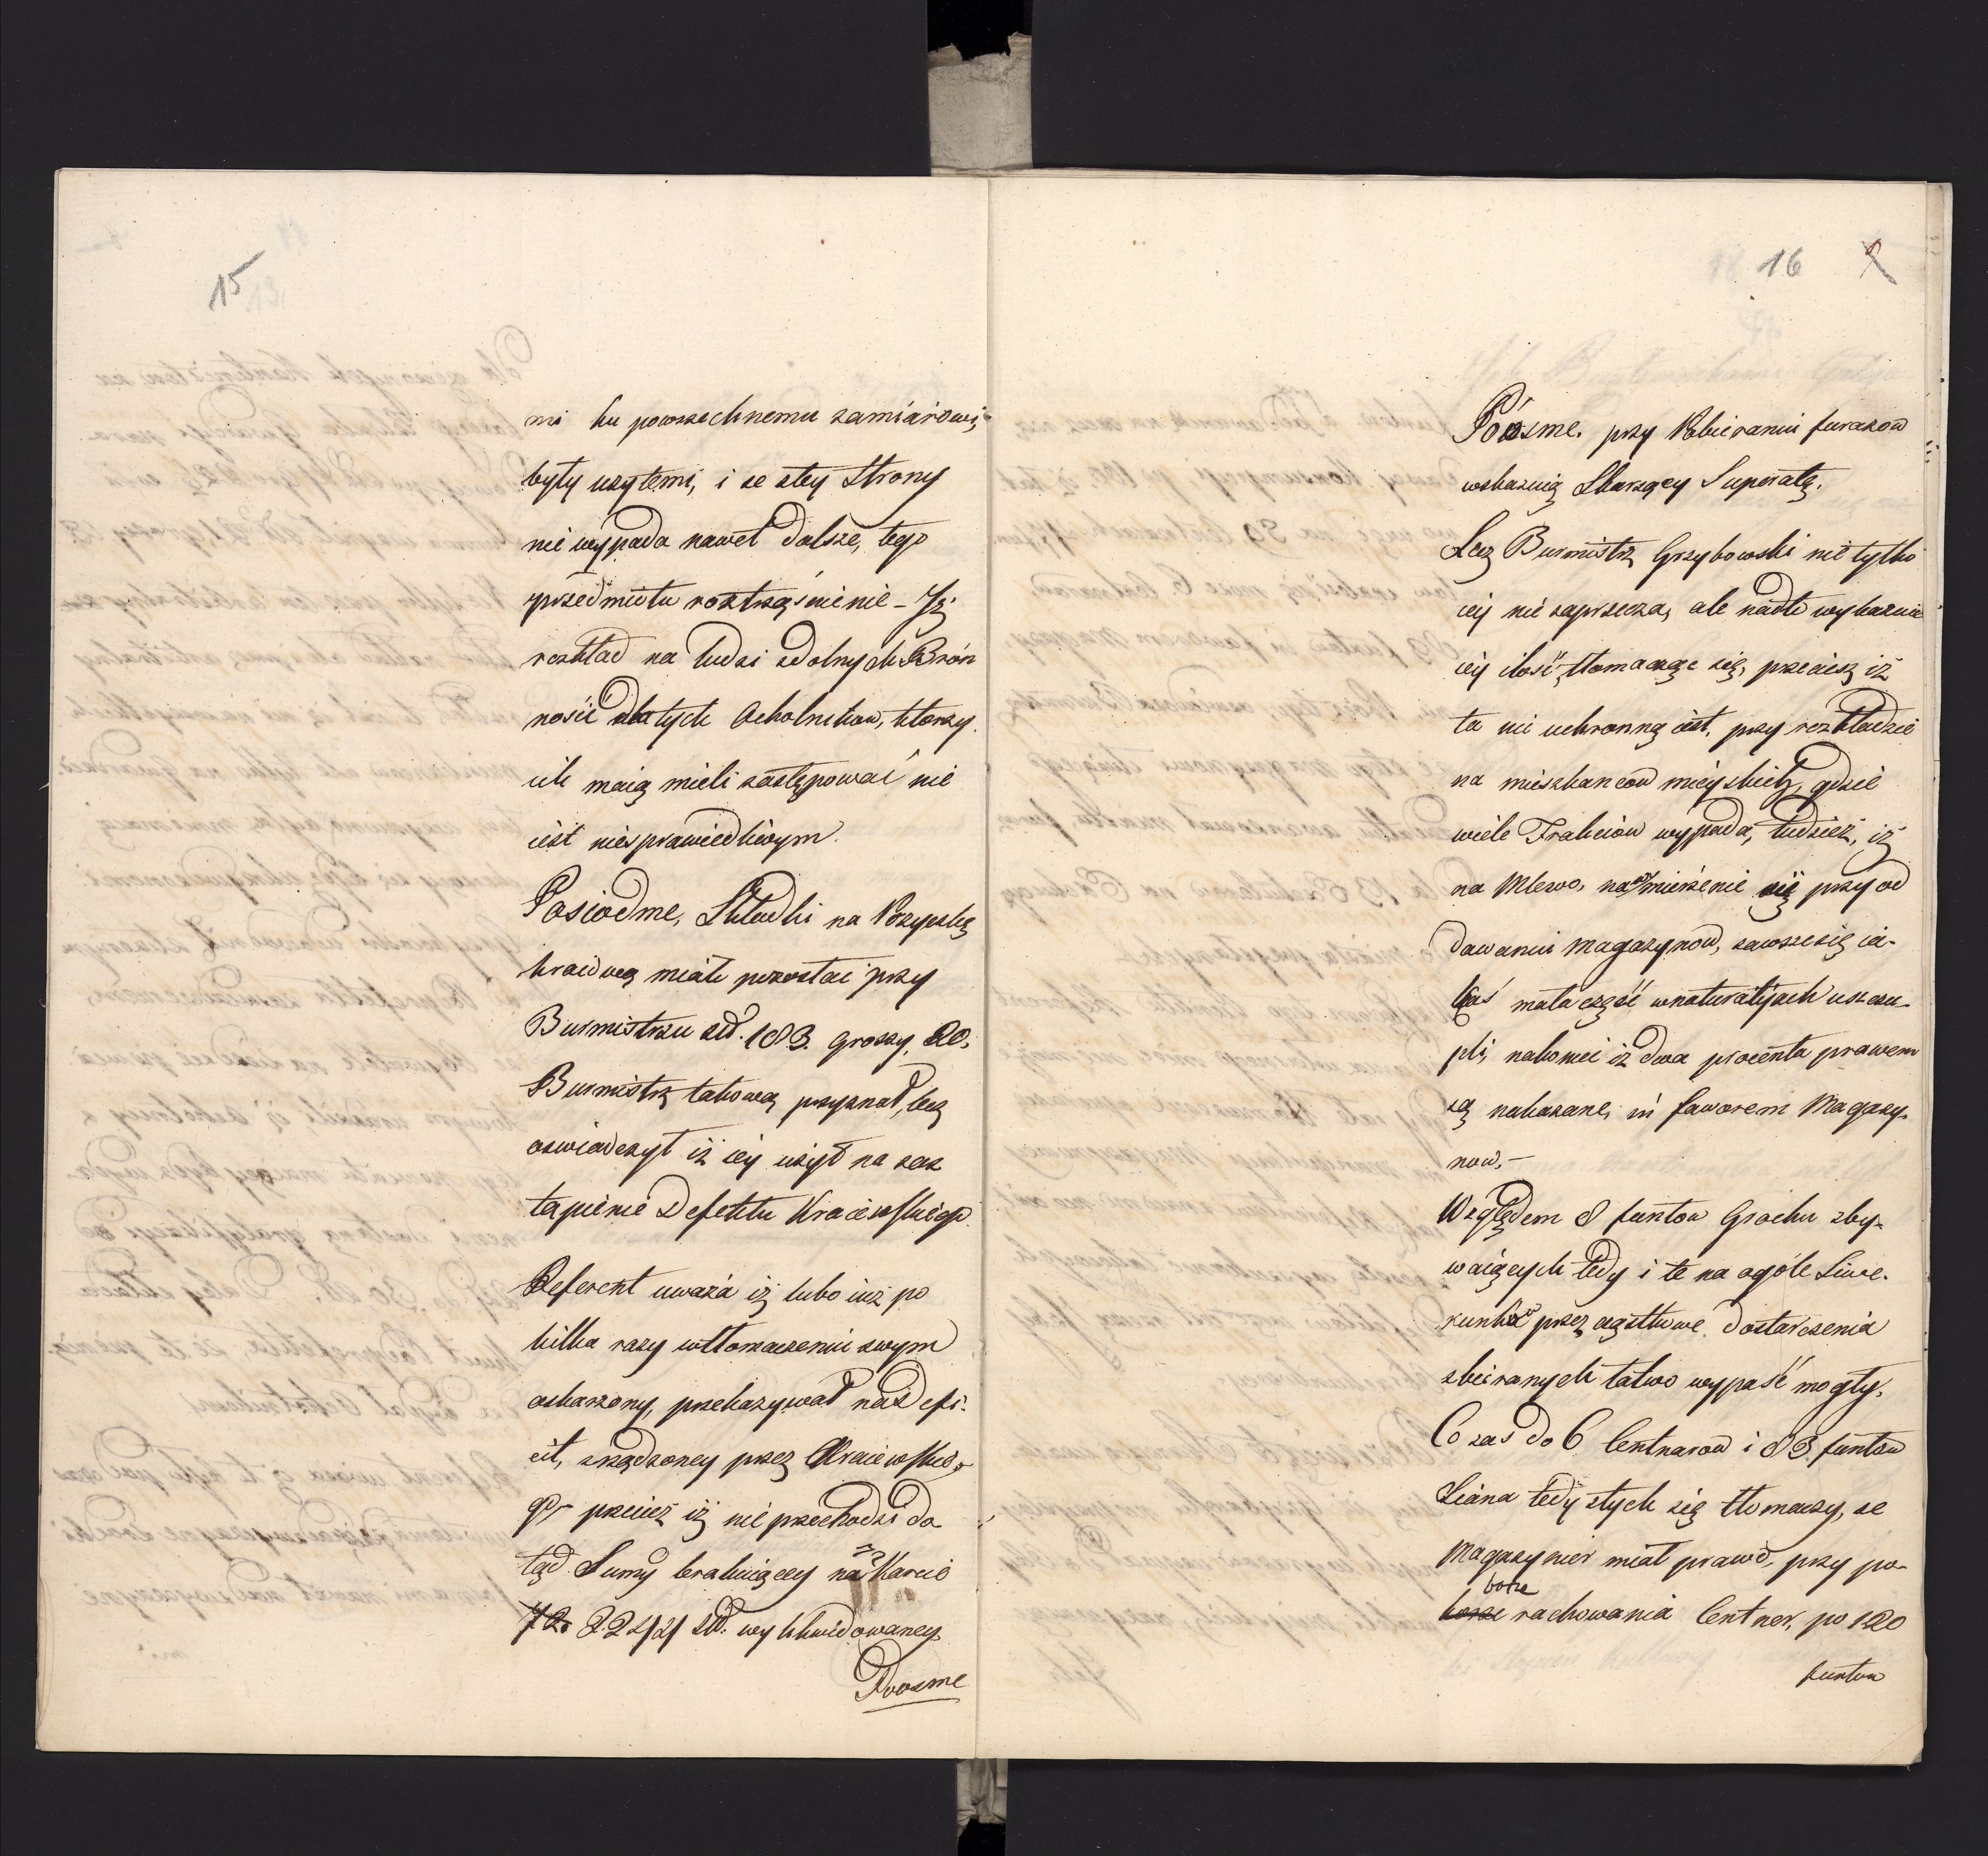 15
mi ku powszechnemu zamiarowi,
były użytemi, i ze stey Strony
nie wypada nawet dalsze, tego
przedmiotu roztrząśnienie – Iż
rozkład na ludzi zdolnych Broń
nosić dla tych Ochotnikow, ktorzy
ich maią mieli zastępować nie
iest niesprawiedliwym.
Posiodme, Składki na Pożyczkę
kraiową miało pozostać przy
Burmistrzu złł. 183. groszy. 20.
Burmistrz takową przyznał, lecz
oswiadczył iż iey użył na zas
tąpienie Defektu Kraiewskiego
Referent uważa iż lubo iuż po
kilka razy wtłomaczeniu swym
oskarzony, przekazywał nad efi-
cit, zrządzoney przez Kraiewskie-
go przecież iż nie przechodzi do
tąd Sumy brakuiącey na Karcie
72. 2242/ złł. wyklwidowaney
Poosme
16
Poosme. przy Pobieraniu furazow
wskazuią Skarzący Superatę.
Lecz Burmistrz Grzybowski nie tylko
iey nie zaprzecza, ale nadto wykazuie
iey ilość, tłomacząc się, przecież iż
ta nie uchronną iest, przy rozkładzie
na mieszkancow mieyskich, gdzie
wiele Frakciow wypada, tudzież, iż
na Mlewo, na mierzenie się przy od
dawaniu magazynow, zawsze się ia-
kaś mała część wnaturaljach uszczu-
pli, nakoniec iż dwa procenta prawem
są nakazane, in faworem Magazy-
now. –
Względem 8 funtow Grochu zby-
waiących tedy i te na ogóle Liwe-
runkow przez cząstkowe dostarczenia
zbieranych łatwo wypaść mogły.
Co zas do 6 Centnarow i 83 funtow
Siana tedy stych się tłomaczy, ze
Magazynier miał prawo, przy po-
borze
rachowania Centner, po 120
funtow